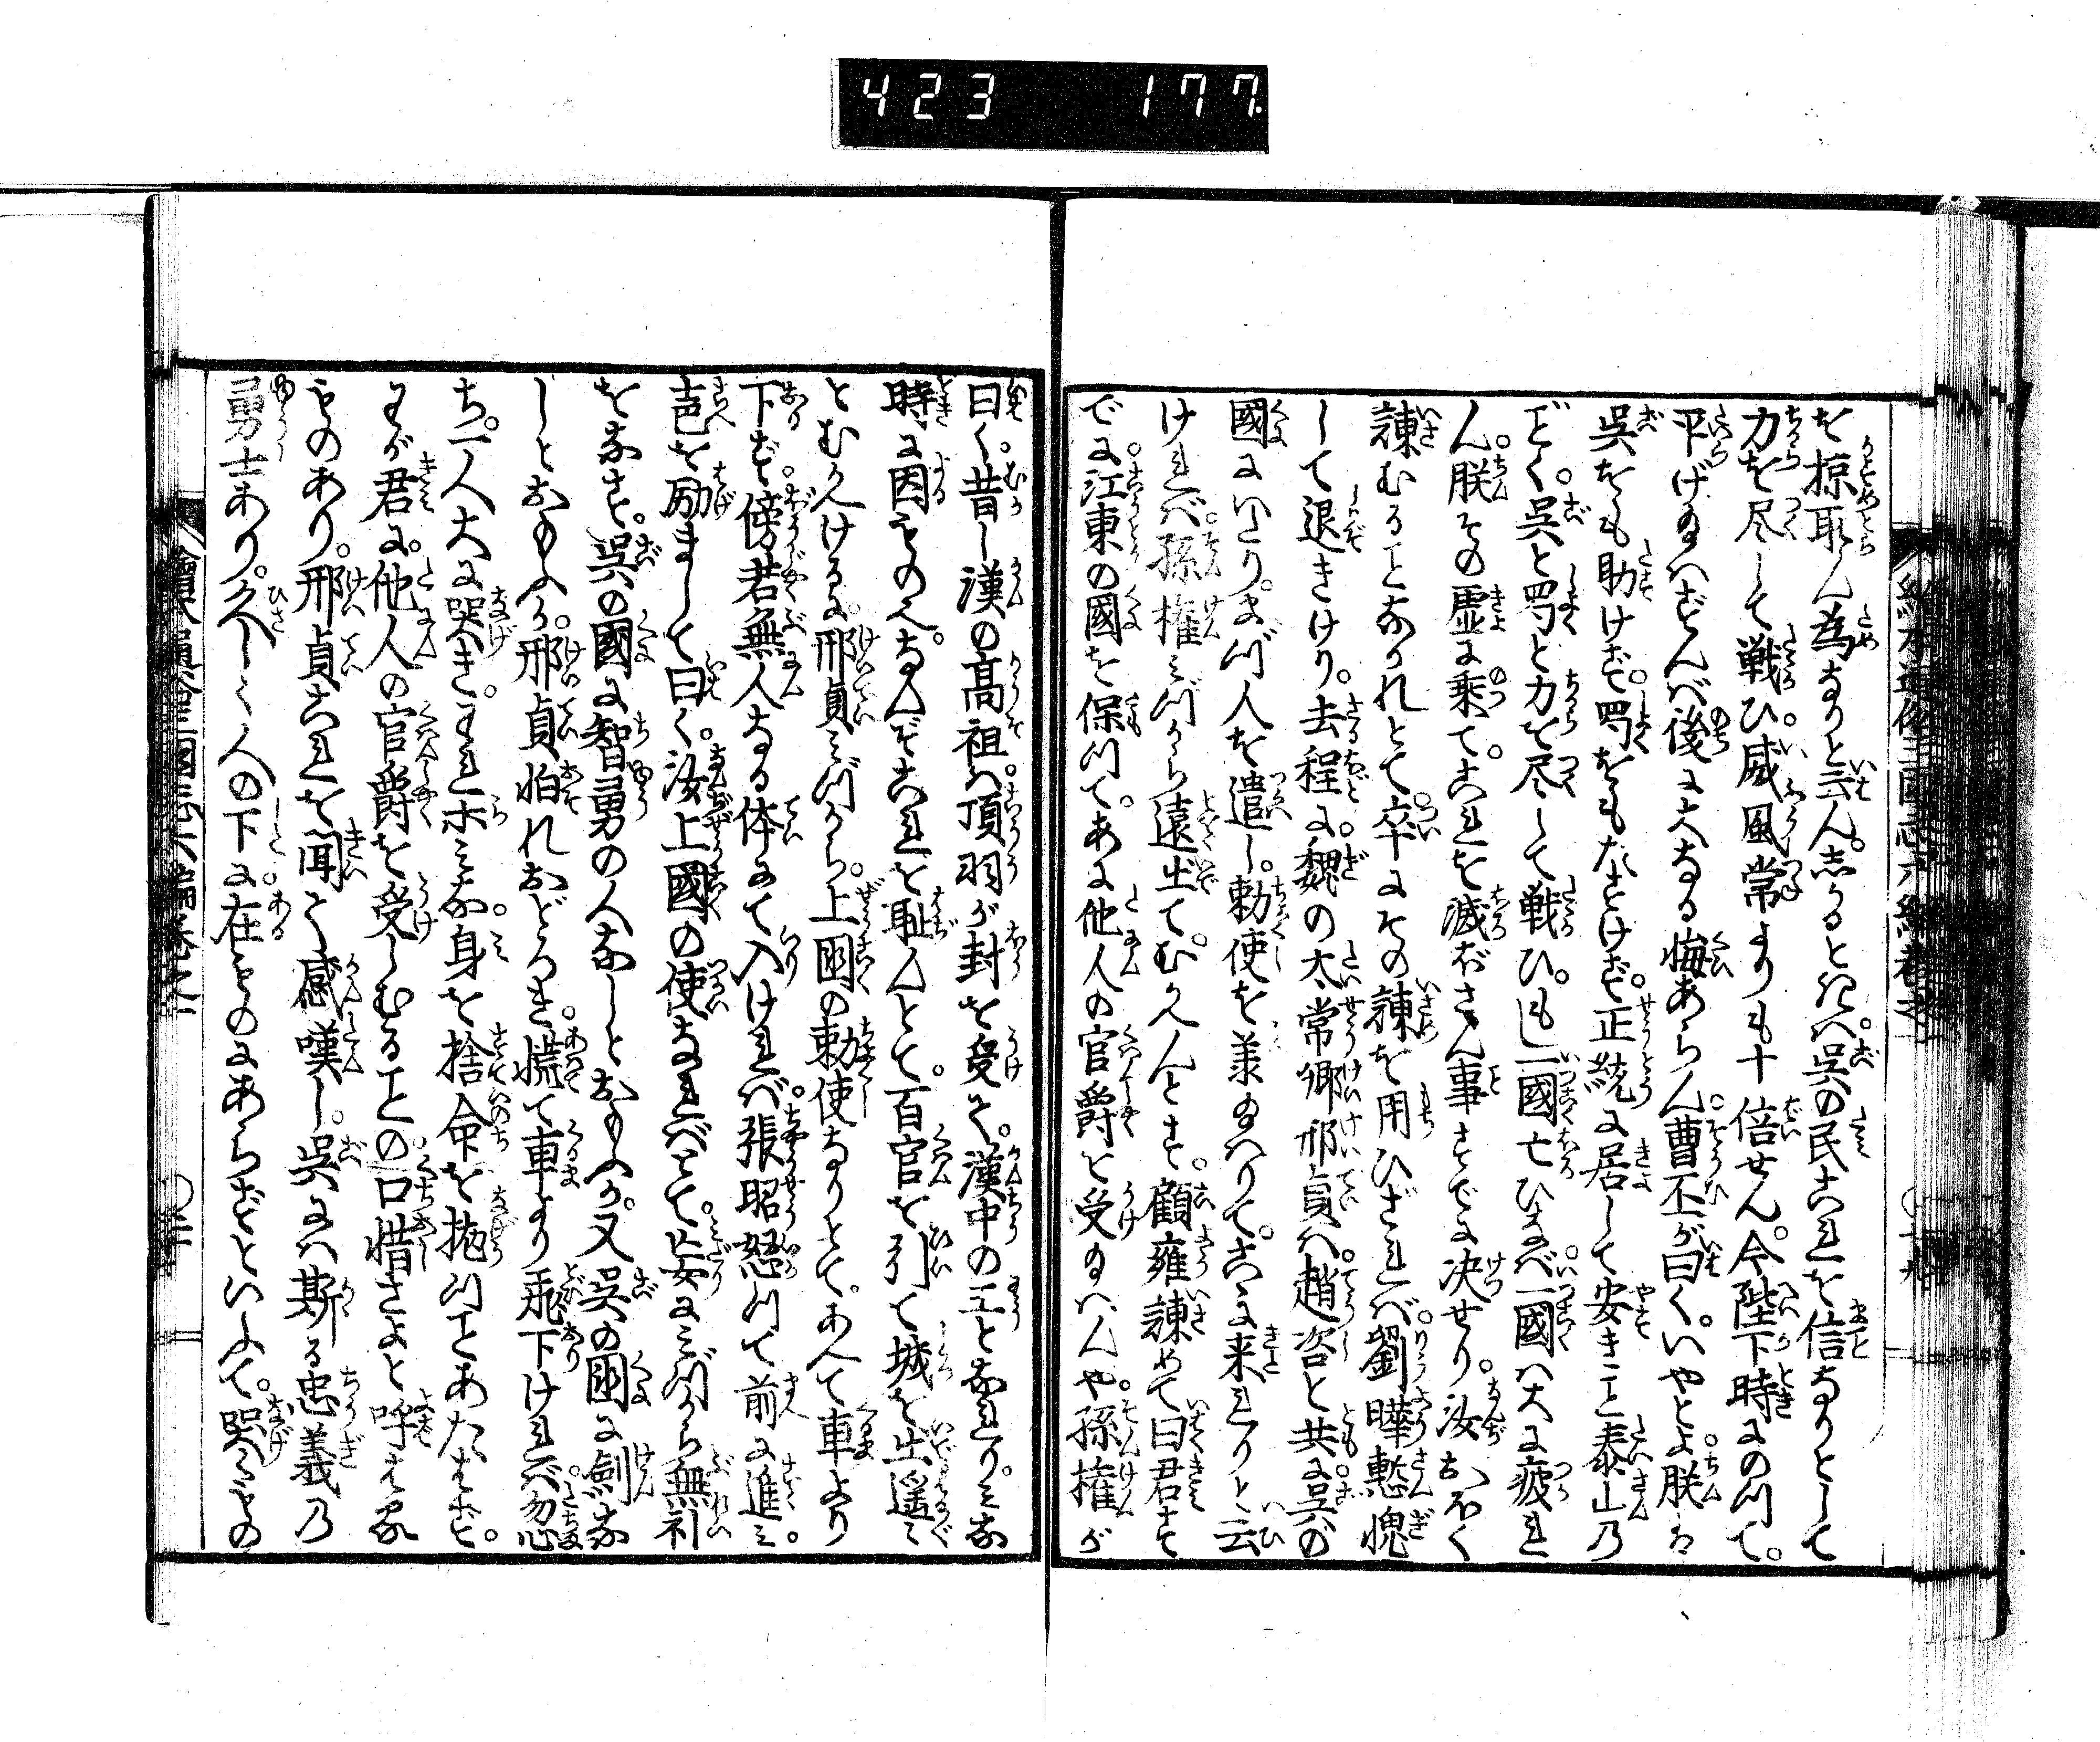 423 177.
を掠取ん為なりと云ん。志かるときハ呉の民これを信なりとして
力を尽して戦ひ。威風常よりも十倍せん。今陛下時にのつて。
平げ給ハずんバ後に大なる悔あらん。曹丕が曰く。いやとよ朕は
呉をも助けず。蜀をもたすけず。正統に居して安きこと泰山乃
ごとく。呉と蜀と力を尽して戦ひ。もし一國亡ひなバ。一國ハ大に疲れ
ん。朕その虚に乗て。これを滅ぼさん事すでに决せり。汝おほく
諌むることなかれとて。卒にその諌を用ひざれバ。劉曄慙愧
して退きけり。去程に。魏の太常卿邢貞ハ。趙咨と共に。呉の
國にいたり。まづ人を遣し。勅使を兼給へりて。こゝに来れりと云
けれバ。孫権みづから遠出て。むかへんとす。顧雍諌めて曰君す
でに。江東の國を保つて。あに他人の官爵を受給ハんや。孫権が
曰く。昔し漢の高祖ハ。項羽が封を受て。漢中の王となれり。みな
時に因ものヘ。なんぞこれを恥んとて。百官を引て城を出遥々
とむかへけるに。邢貞みづから。上國の勅使なりとて。あへて車より
下ず。傍若無人なる体にて入けれバ。張昭怒つて前に進ミ。
声を励まして曰く。汝上國の使なれバとて。妄にみづから無礼
をなす。呉の國に智勇の人なしとおもふか。又呉の國に劍な
しとおもふか。邢貞怕れおどろき。慌て車より飛下けれバ。忽
ち。一人大に哭き。われホみな。身を捨命を抛つことあたはず。
わが君に。他人の官爵を受しむることの。口惜さよと呼はる
ものあり。邢貞これを聞て感嘆し。呉にハ斯る忠義乃
勇士あり。久しく人の下に。在ものにあらずといふて。哭くもの
繪本通俗三國志六編巻之